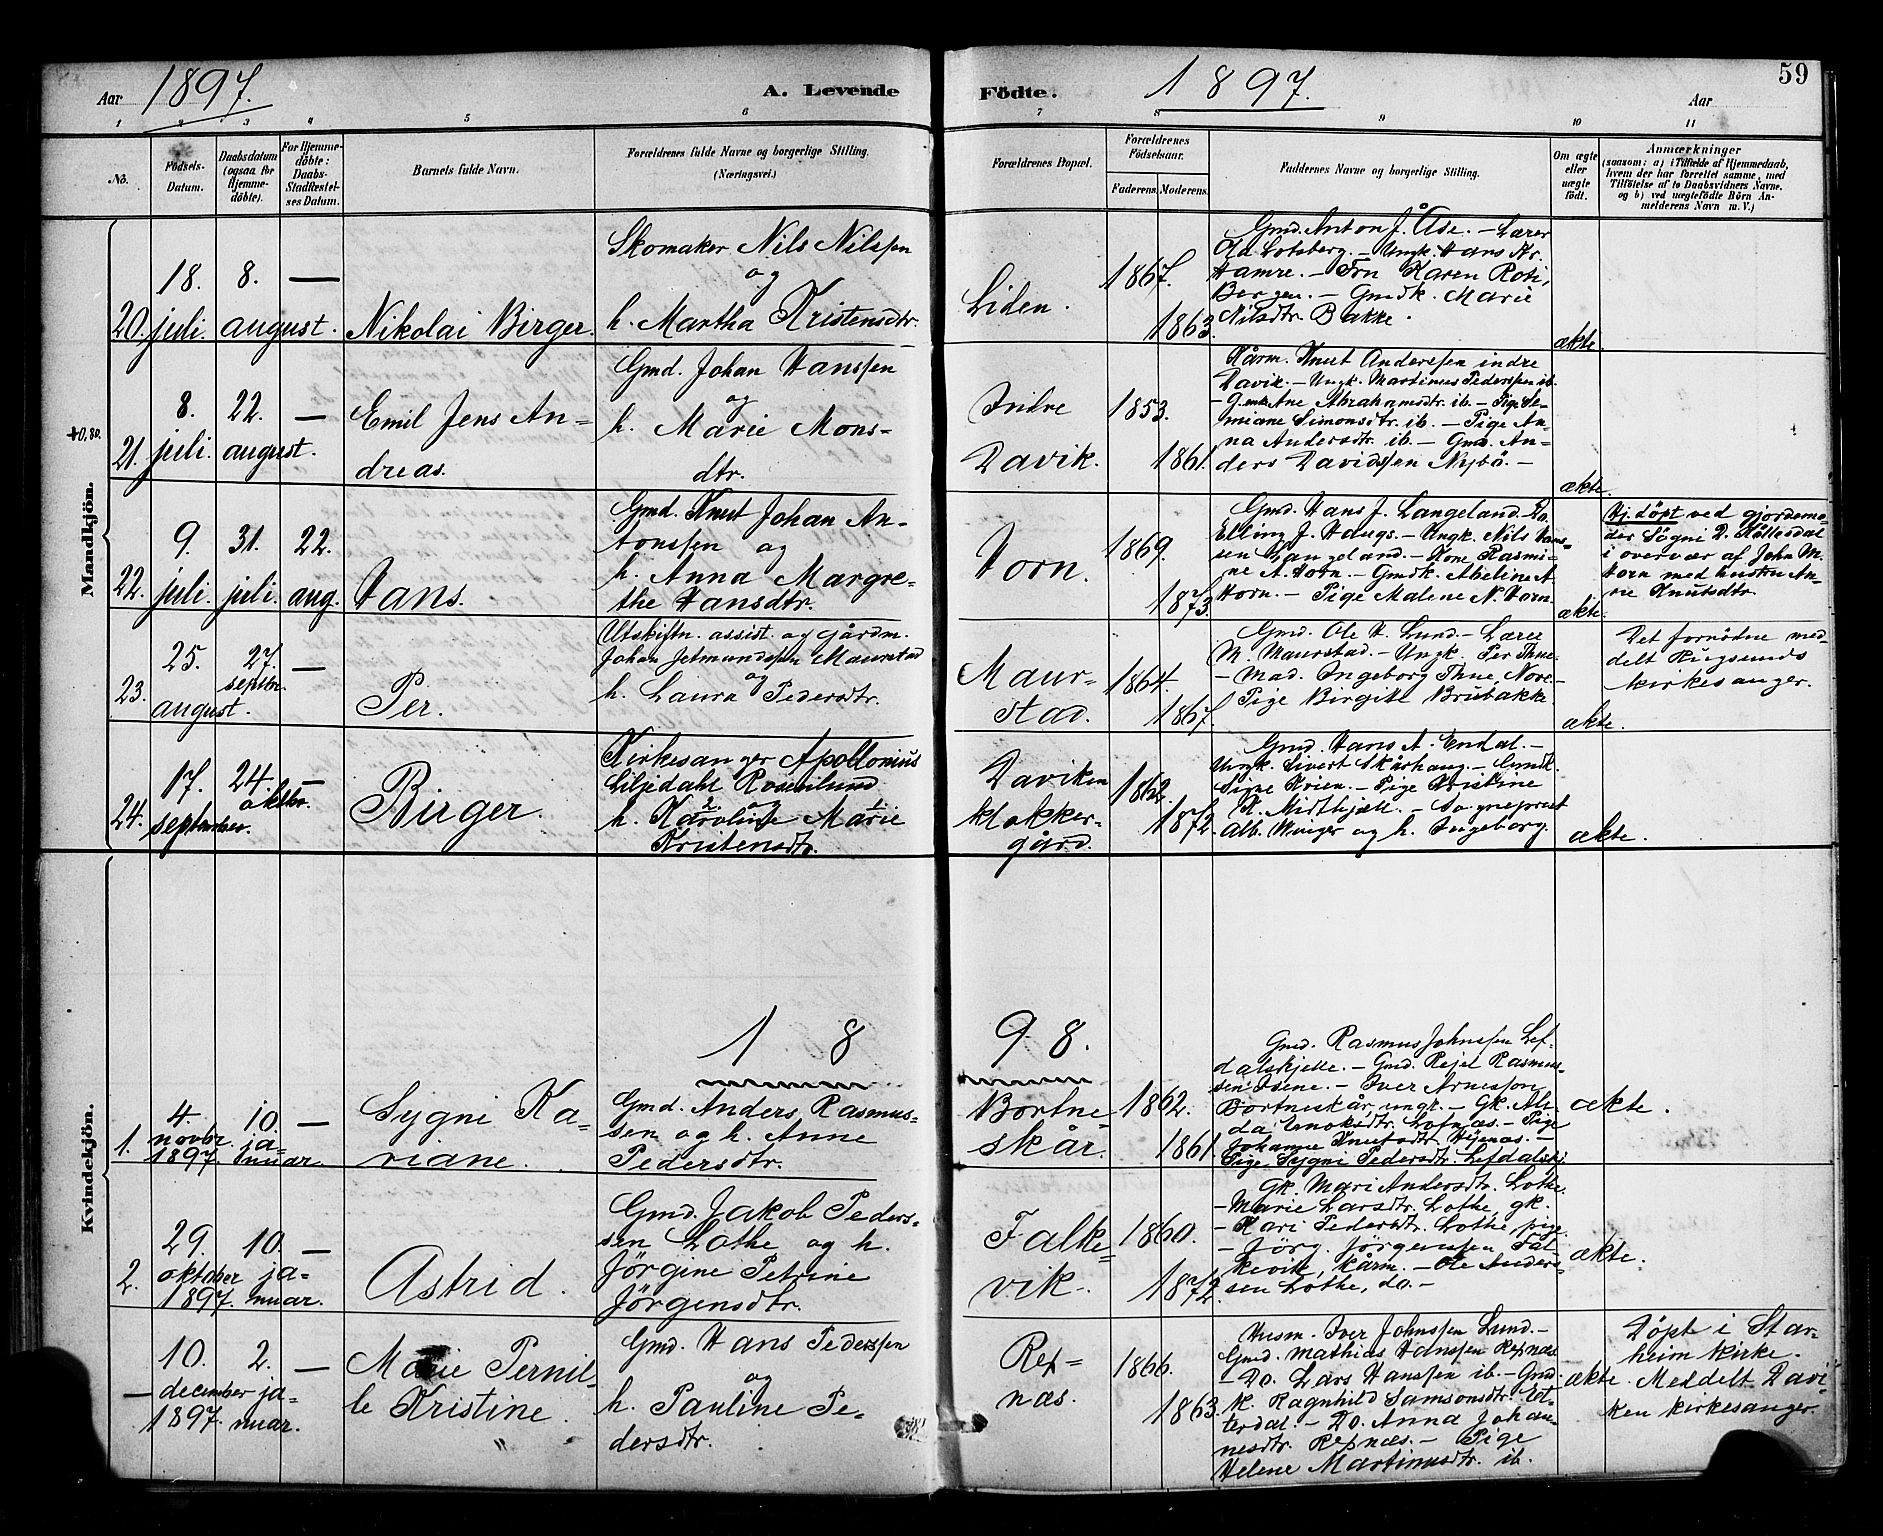 Aar 1897. A. Levende Födte. 1897. Aar 59
1 2 3 4 5 6 7 8 9 10 11
No. Födsels-Datum. Daabsdatum (ogsaa for Hjemme-döbte). For Hjemme-döbte: Daabs-Stadfæstel-ses Datum. Barnets fulde Navn. Forældrenes fulde Navne og borgerlige Stilling. (Næringsvei.) Forældrenes Bopæl. Forældrenes Födselsaar. Faderens. Moderens. Faddernes Navne og borgerlige Stilling. Om ægte eller uægte födt. Anmærkninger
(saasom: a) i Tilfælde af Hjemmedaab, hvem der har forrettet samme, med Tilföielse af to Daabsvidners Navne. og b) ved uægtefödte Börn An-melderens Navn m. V.)
Mandkjön.
20. 18. juli. 8. august. —
Nikolai Birger.
Skomaker Nils Nilssen
og
h. Martha Kristensdtr.
Liden.
1867.
1863.
Gmd. Anton J. Åse. – Lærer
Ole Lotsberg. – Ungk. Hans Kr.
Hamre. – Frn Karen Roti,
Bergen. – Gmdk. Marie
Nilsdtr. Bakke.
ækte.
21. 8. juli. 22. august. —
Emil Jens An-
dreas.
Gmd. Johan Hanssen
og
h. Marie Mons-
dtr.
Indre
Davik.
1853.
1861.
Kårm. Knut Anderssen indre
Davik. – Ungk. Martinus Pederssen ib.
– Gmk Ane Abrahamsdtr. ib. – Pige Se-
miane Simonsdtr. ib. – Pige An-
na Andersdtr. ib. – Gmd. An-
ders Davidssen Nybö. –
ækte.
22. 9. juli. 31. juli. 22. aug.
Hans.
Gmd. Knut Johan An-
tonssen og
h. Anna Margre-
the Hansdtr.
Horn.
1869.
1873.
Gmd. Hans J. Langeland. Do.
Elling J. Haugs. – Ungk. Nils Hans-
sen Langeland. – Kone Rasmi-
ne A. Horn. – Gmdk. Abeline A.
Horn. – Pige Malene N. Horn.
ækte.
Hj. döpt ved gjordemo-
der Sögni D.
i overvær af John M.
Horn med hustru An-
ne Knutsdtr.
23. 25. august. 27. septbr. —
Per.
Utskiftn. assist. og gårdm.
Johan Jetmundssen Maurstad
og
h. Laura Pedersdtr.
Maur-
stad.
1864.
1867.
Gmd. Ole H. Lund. – Lærer
M. Maurstad. – Ungk. Per Thue
– Mad. Ingeborg Thue, Nore. –
Pige Birgitte Brubakke.
ækte.
Det fornödne med-
delt Rugsunds
kirkesanger.
24. 17. september. 24. oktbr. —
Birger.
Kirkesanger Apollonius
Liljedahl Rosenlund
og
h. Karoline Marie
Kristensdtr.
Daviken
klokker-
gård.
1862.
1872.
Gmd. Hans A. Endal. –
Ungk. Sivert Skårhaug. – Gmdk.
Signe Hrien. – Pige Kristine
K. Midthjell. – Sogneprest
Alb. Unger og h. Ingeborg.
ækte.
1898.
Kvindekjön.
1. 4. novbr. 1897. 10. ja-nuar. —
Sygni Ka-
riane.
Gmd. Anders Rasmus-
sen og h. Anne
Pedersdtr.
Bortne-
skår.
1862.
1861.
Gmd. Rasmus Johnssen Lef-
dalskjelle. – Gmd. Rejel Rasmus-
sen Isene. – Iver Arnesson
Bortneskår, ungk. – Gk. Ali-
da Enoksdtr. Lofnæs. – Pige
Johanne Knutsdtr. Höjnæs. –
Pige Sygni Pedersdtr. Lefdalskj.
ækte.
2. 29. oktober 1897. 10. ja-nuar. —
Astrid.
Gmd. Jakob Peders-
sen Lothe og h.
Jörgine Petrine
Jörgensdtr.
Falke-
vik.
1860.
1872.
Gk. Mari Andersdtr. Lothe.
– Marie Larsdtr. Lothe, gk.
– Kari Pedersdtr. Lothe, pige
– Jörg. Jörgenssen Fal-
kevik, kårm. – Ole Anders-
sen Lothe, do. –
ækte.
— 10. december 1897. 2. ja-nuar. —
Marie Pernil-
le Kristine.
Gmd. Hans Pederssen
og
h. Pauline Pe-
dersdtr.
Rep-
næs.
1866.
1863.
Husm. Iver Johnssen Lund. –
Gmd. Mathias Hanssen Repnæs
– Do. Lars Hanssen ib. – Gmd.
k. Ragnhild Samsonsdtr. Ot-
terdal. – Do. Anna Johan-
nesdtr. Repnæs. – Pige
Helene Martinusdtr. ib.
ækte.
Döpt i Star-
heim kirke.
Meddelt Davi-
ken kirkesanger.